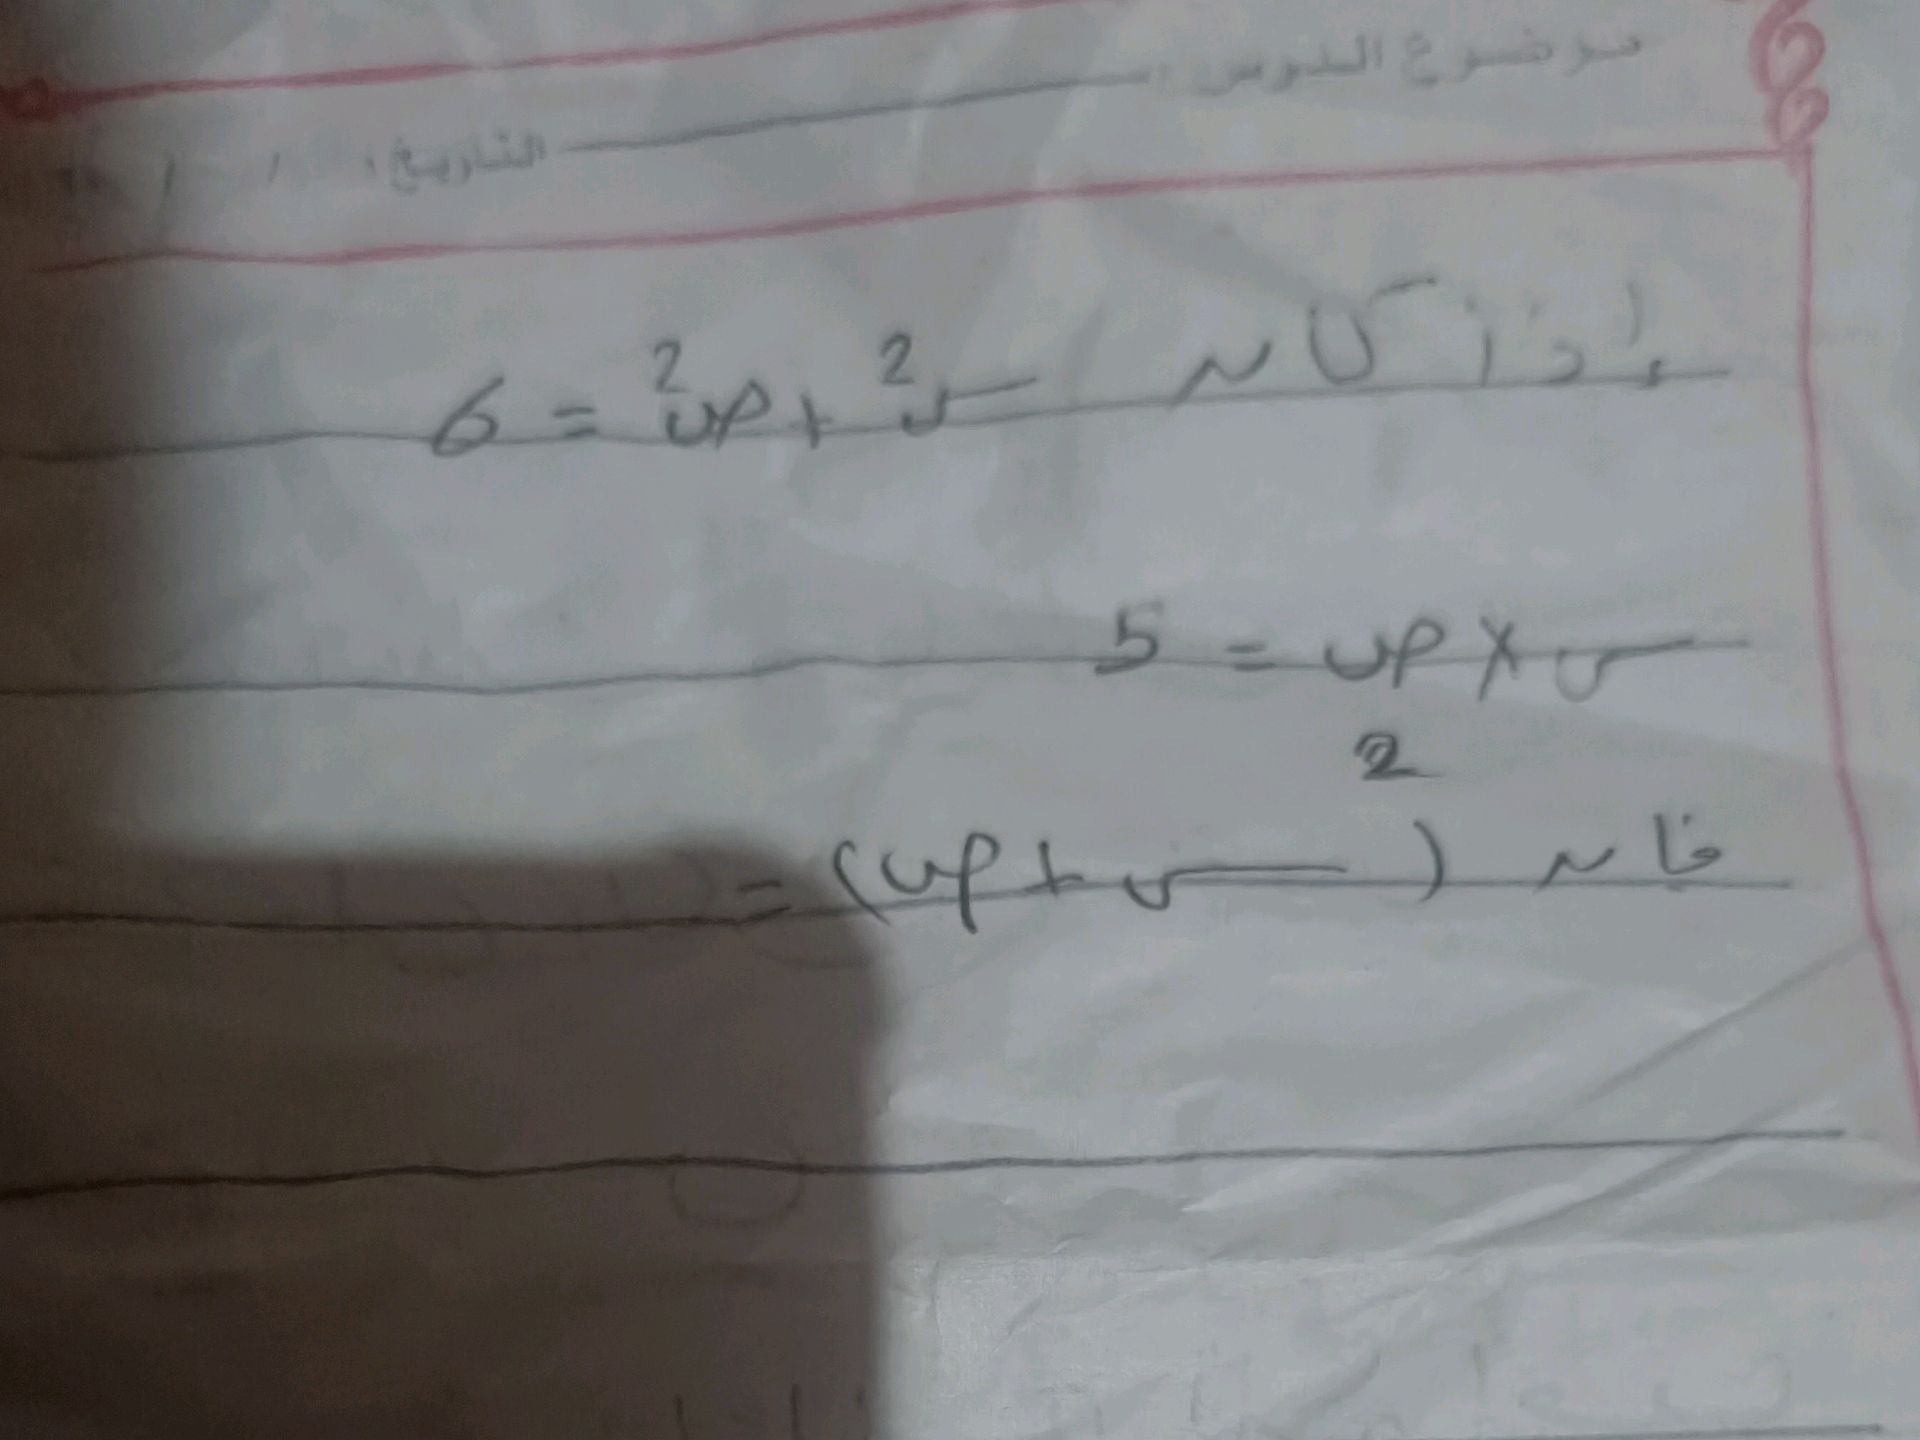 موضوع الدرس:
التاريخ: / /
إذا كان س² + ص² = 6
س × ص = 5
2
فان (س + ص) =